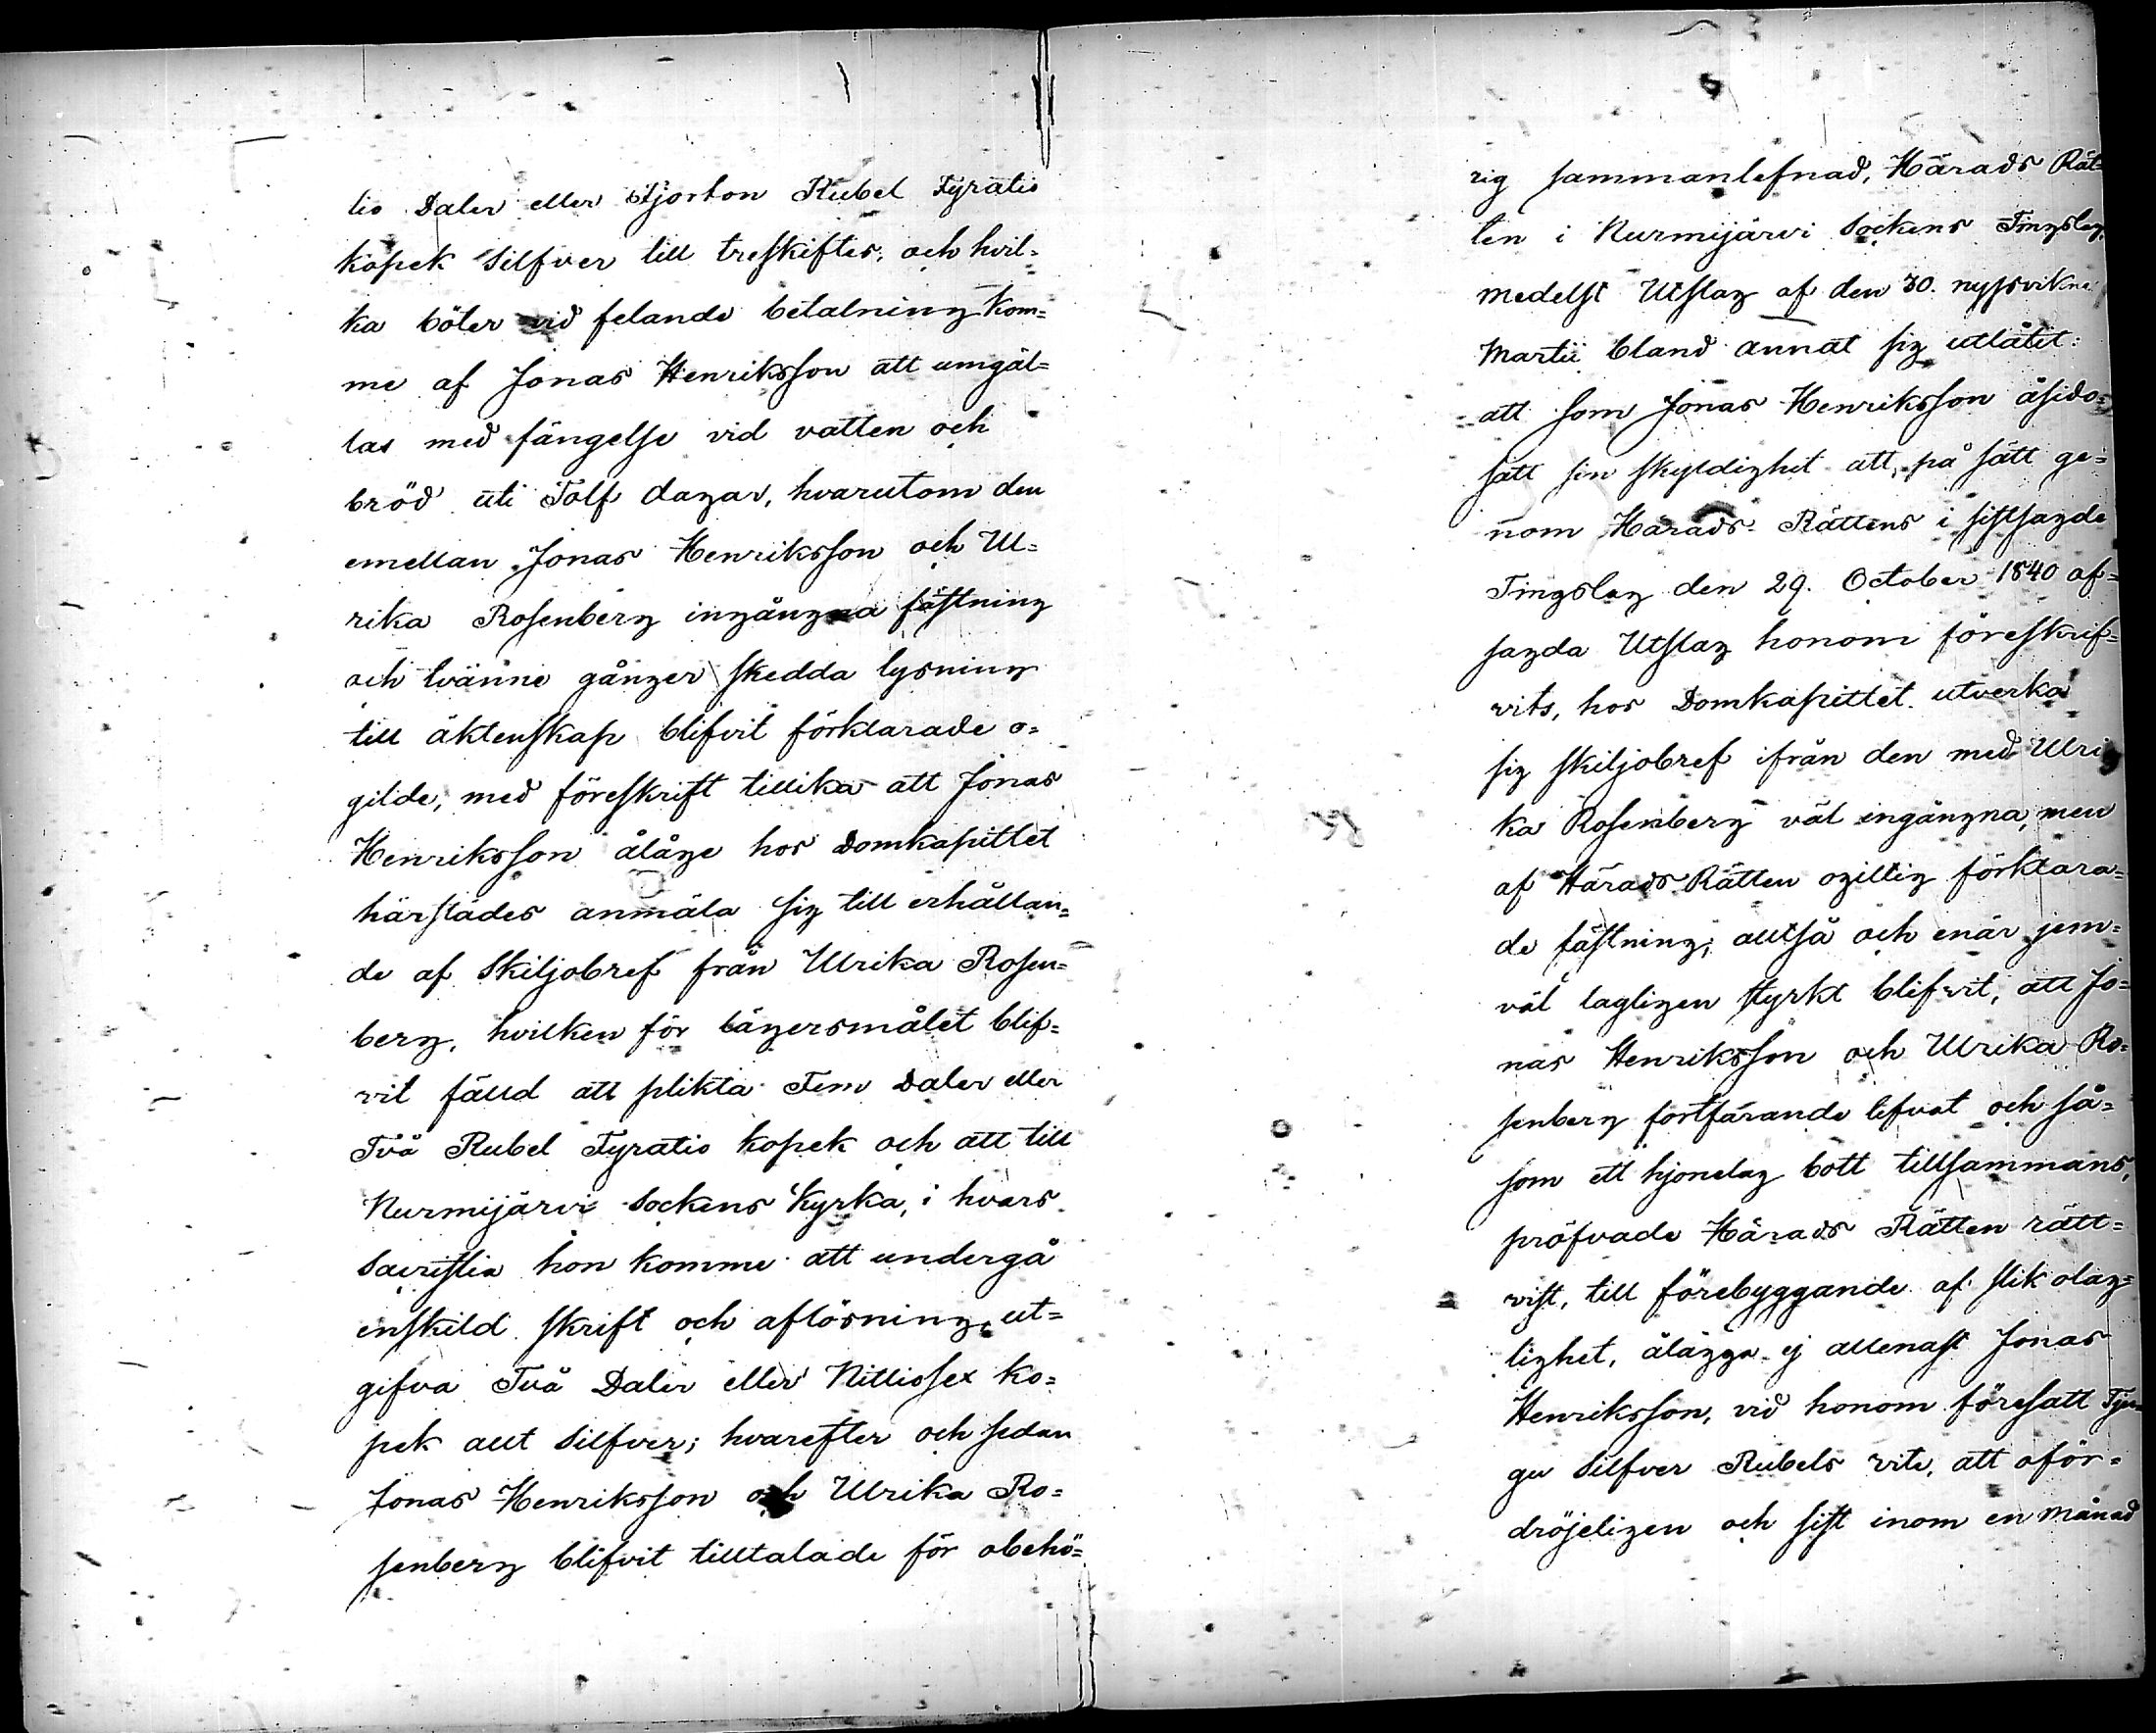 tio Daler eller Fjorton Rubel Fyratio
kopek Silfver till treskiftes, och hvil=
ka böter vid felande betalning kom=
me af Jonas Henriksson att umgäl=
las med fängelse vid vatten och
bröd uti Tolf dagar, hvarutom den
emellan Jonas Henriksson och Ul=
rika Rosenberg ingångna fästning
och tvänne gånger skedda lysning
till äktenskap blifvit förklarade o=
gilde, med föreskrift tillika att Jonas
Henriksson ålåge hos Domkapittlet
härstädes anmäla sig till erhållan=
de af Skiljobref från Ulrika Rosen=
berg, hvilken för lägersmålet blif=
vit fälld att plikta Fem Daler eller
Två Rubel Fyratio kopek och att till
Nurmijärvi Sockens Kyrka, i hvars
Sacristia hon komme att undergå
enskild skrift och aflösning, ut=
gifva Två Daler eller Nittiosex ko=
pek allt Silfver; hvarefter och sedan
Jonas Henriksson och Ulrika Ro=
senberg blifvit tilltalade för obehö=
rig sammanlefnad, Härads Rät=
ten i Nurmijärvi Sockens Tingslag,
medelst Utslag af den 30. nyssvikne
Martii bland annat sig utlåtit:
att som Jonas Henriksson åsido=
satt sin skyldighet att, på sätt ge=
nom Härads Rättens i sistsagde
Tingslag den 29. October 1840 af=
sagda Utslag honom föreskrif=
vits, hos Domkapittlet utverka
sig skiljobref ifrån den med Ulri
ka Rosenberg väl ingångna, men
af Härads Rätten ogiltig förklara=
de fästning; alltså och enär jem=
väl lagligen styrkt blifvit, att Jo=
nas Henriksson och Ulrika Ro=
senberg fortfarande lefvat och så=
som ett hjonelag bott tillsammans,
pröfvade Härads Rätten rätt=
vist, till förebyggande af slik olag=
lighet, ålägga ej allenast Jonas
Henriksson, vid honom föresatt Tju=
gu Silfver Rubels vite, att oför=
dröjeligen och sist inom en månad